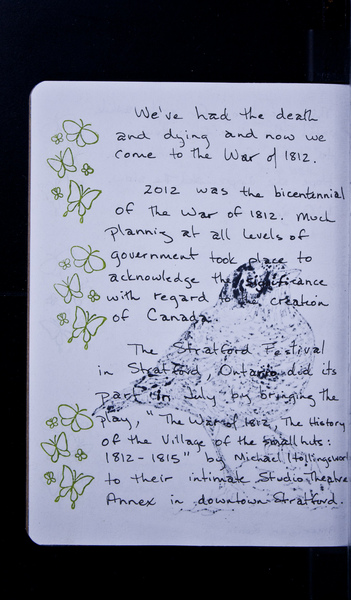 We've had the death
and dying and now we
come to the War of 1812.
2012 was the bicentennial
of the War of 1812. Much
planning at all levels of
government took place to
acknowledge the significance
with regard to the creation
of Canada.
The Stratford Festival
in Stratford, Ontario did its
part in July by bringing the
play, "The War of 1812, The History
of the Village of the Small huts:
1812-1815" by Michael Hollingswor
to their intimate Studio Theatre
Annex in downtown Stratford.